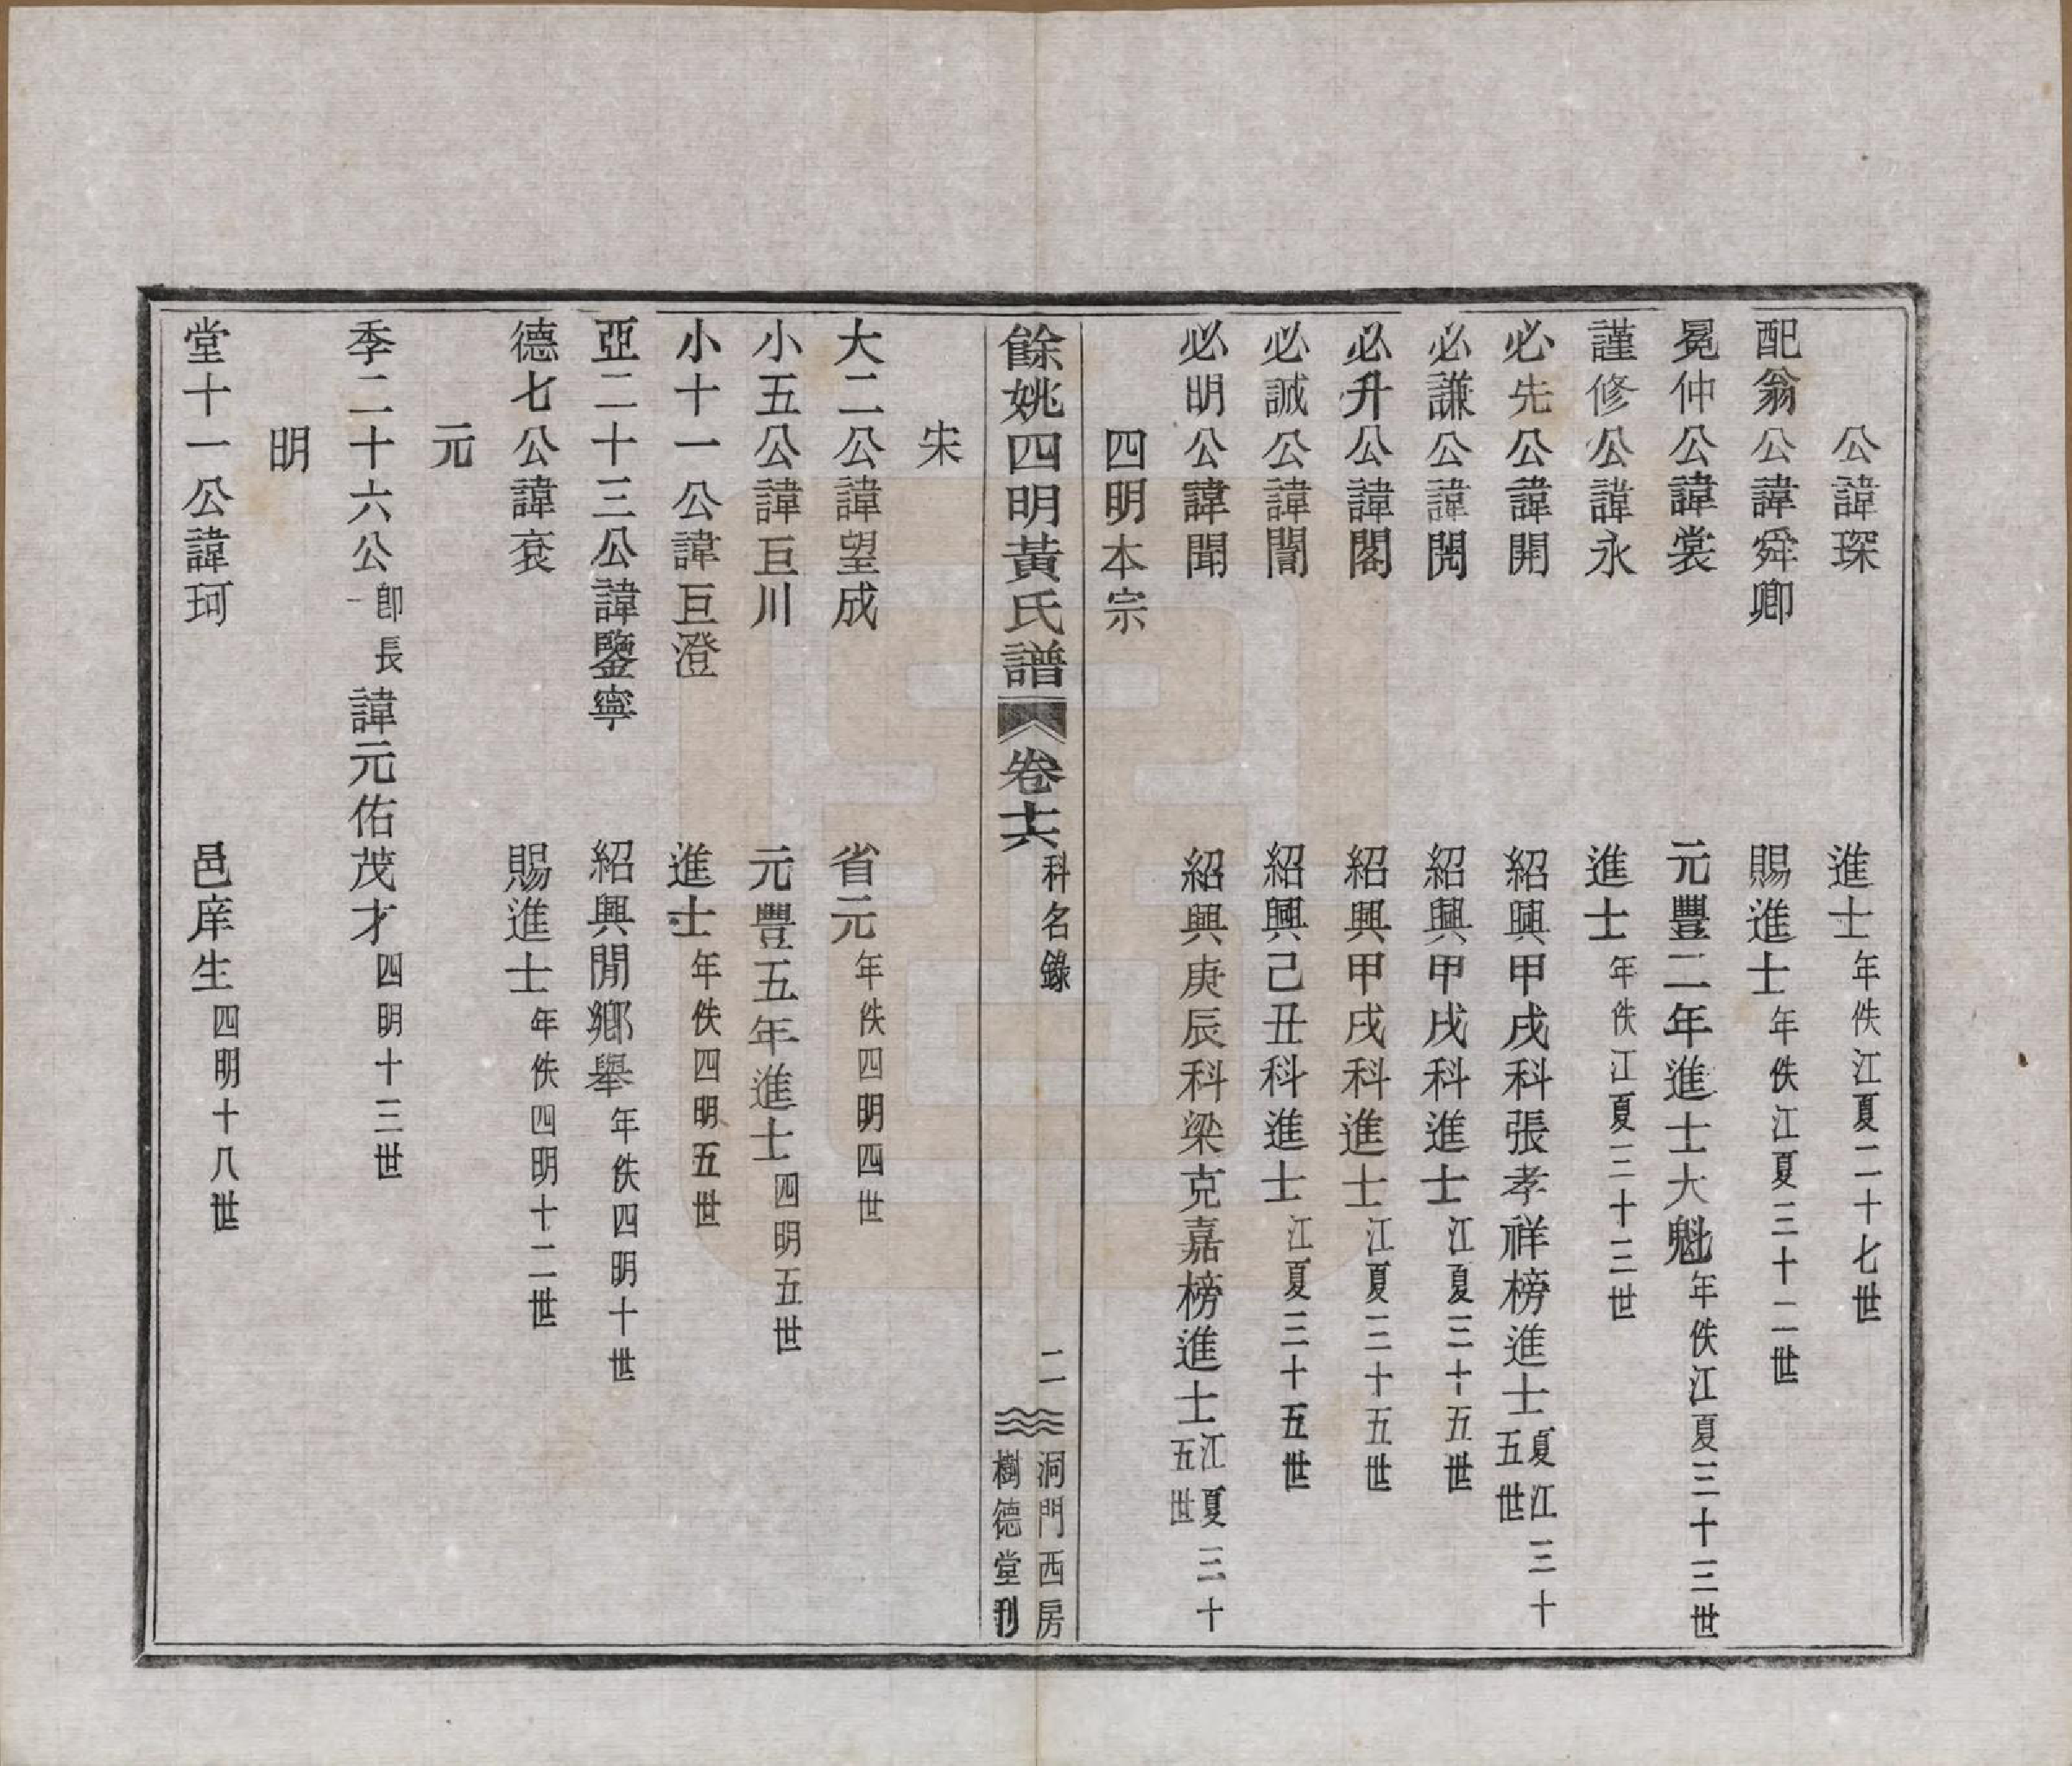 公諱琛　進士年佚江夏二十七世
配翁公諱舜卿　賜進士年佚江夏三十二世
冕仲公諱裳　元豐二年進士大魁年佚江夏三十三世
謹修公諱永　進士年佚江夏三十三世
必先公諱開　紹興甲戌科張孝祥榜進士夏江三十五世
必謙公諱閌　紹興甲戌科進士江夏三十五世
必升公諱閣　紹興甲戌科進士江夏三十五世
必誠公諱闇　紹興己丑科進士江夏三十五世
必明公諱聞　紹興庚辰科梁克嘉榜進士江夏三十五世
四明本宗
餘姚四明黃氏譜　卷十六　科名錄　二　洞門西房樹德堂刊
宋
大二公諱望成　省元年佚四明四世
小五公諱巨川　元豐五年進士四明五世
小十一公諱巨澄　進士年佚四明五世
亞二十三公諱鑒寧　紹興閒鄉舉年佚四明十世
德七公諱袞　賜進士年佚四明十二世
元
季二十六公卽長一諱元佑茂才四明十三世
明
堂十一公諱珂　邑庠生四明十八世